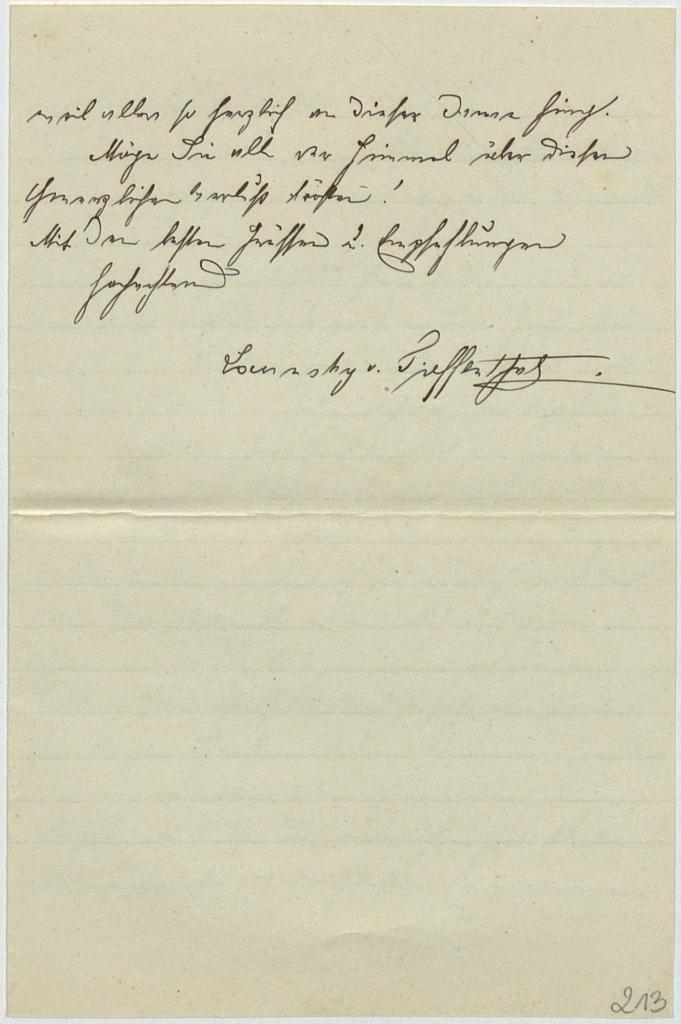 weil alles so herzlich an dieser Dame hing.
Möge Sie alle der Himmel über diesen
schmerzlichen Verlust trösten!
Mit den besten Grüssen u. Empfehlungen
hochachtend
v. Tieffenthal.
213